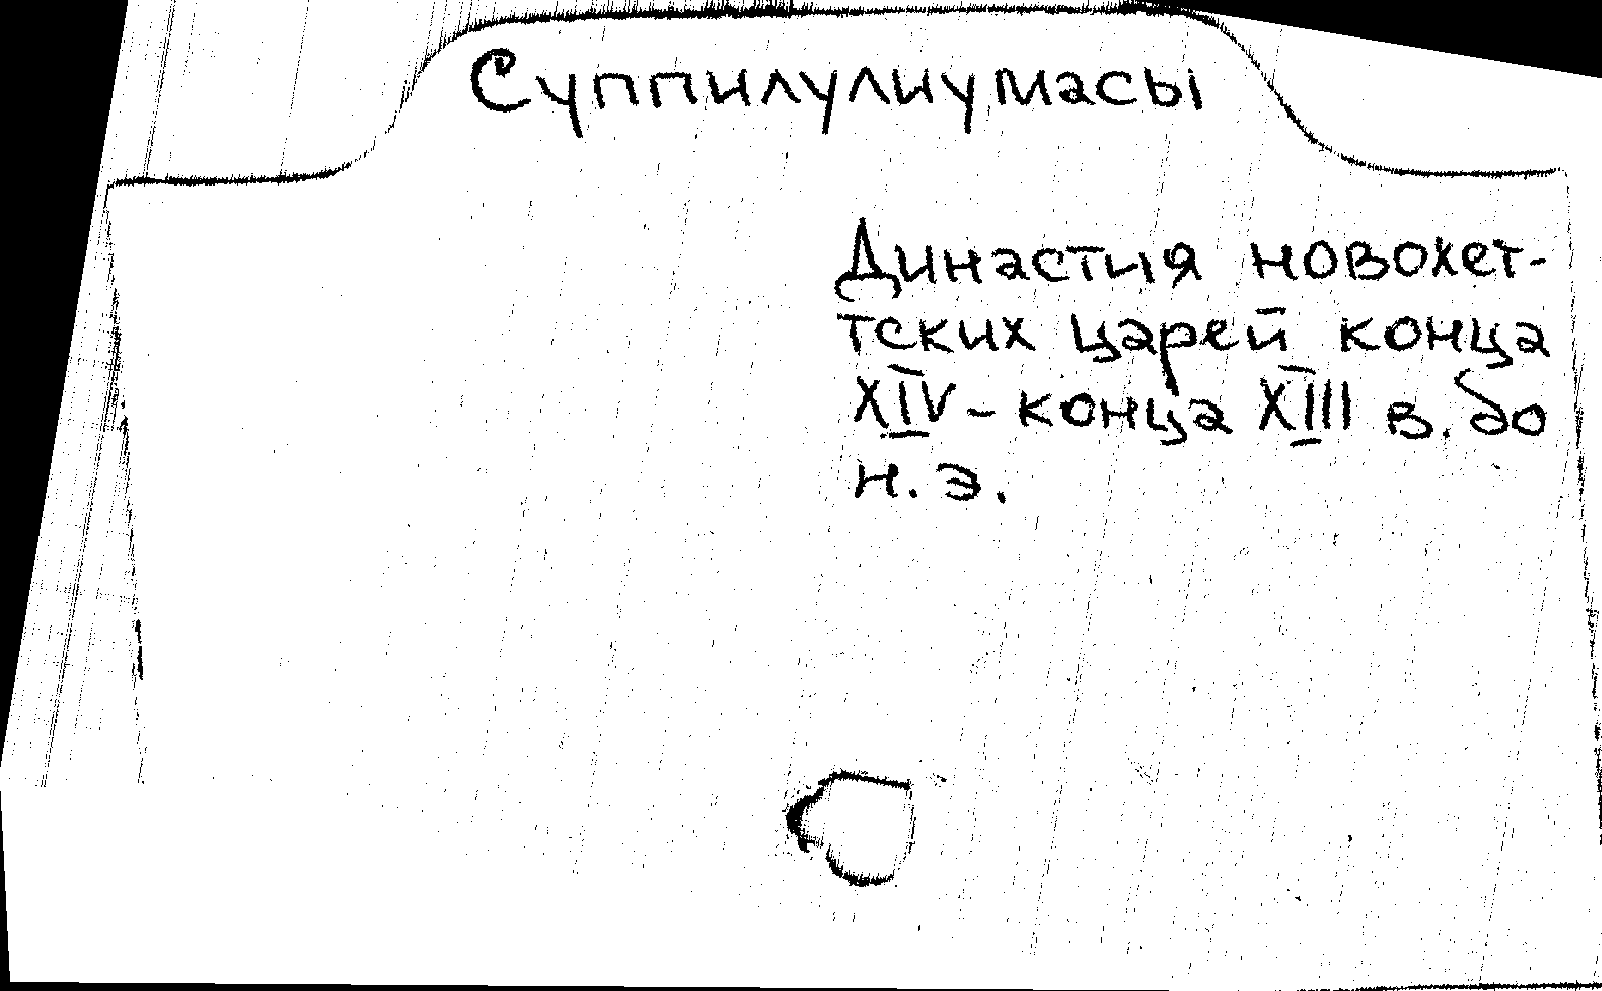 Суппилулиумасы
Династия новохет-
тских царей конца
XIV - конца XIII в. до
н. э.